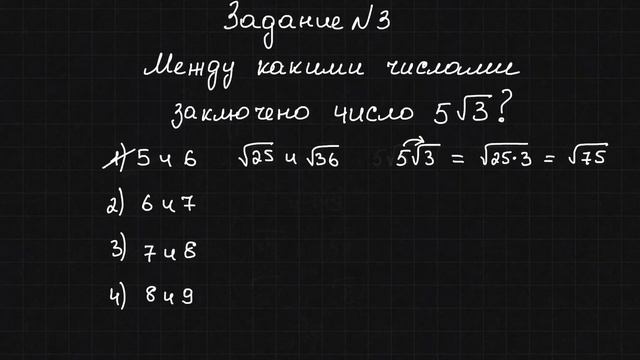 Задание №3
Между какими числами
заключено число 5√3?
1) 5 и 6 √25 и √36 5√3 = √25·3 = √75
2) 6 и 7
3) 7 и 8
4) 8 и 9